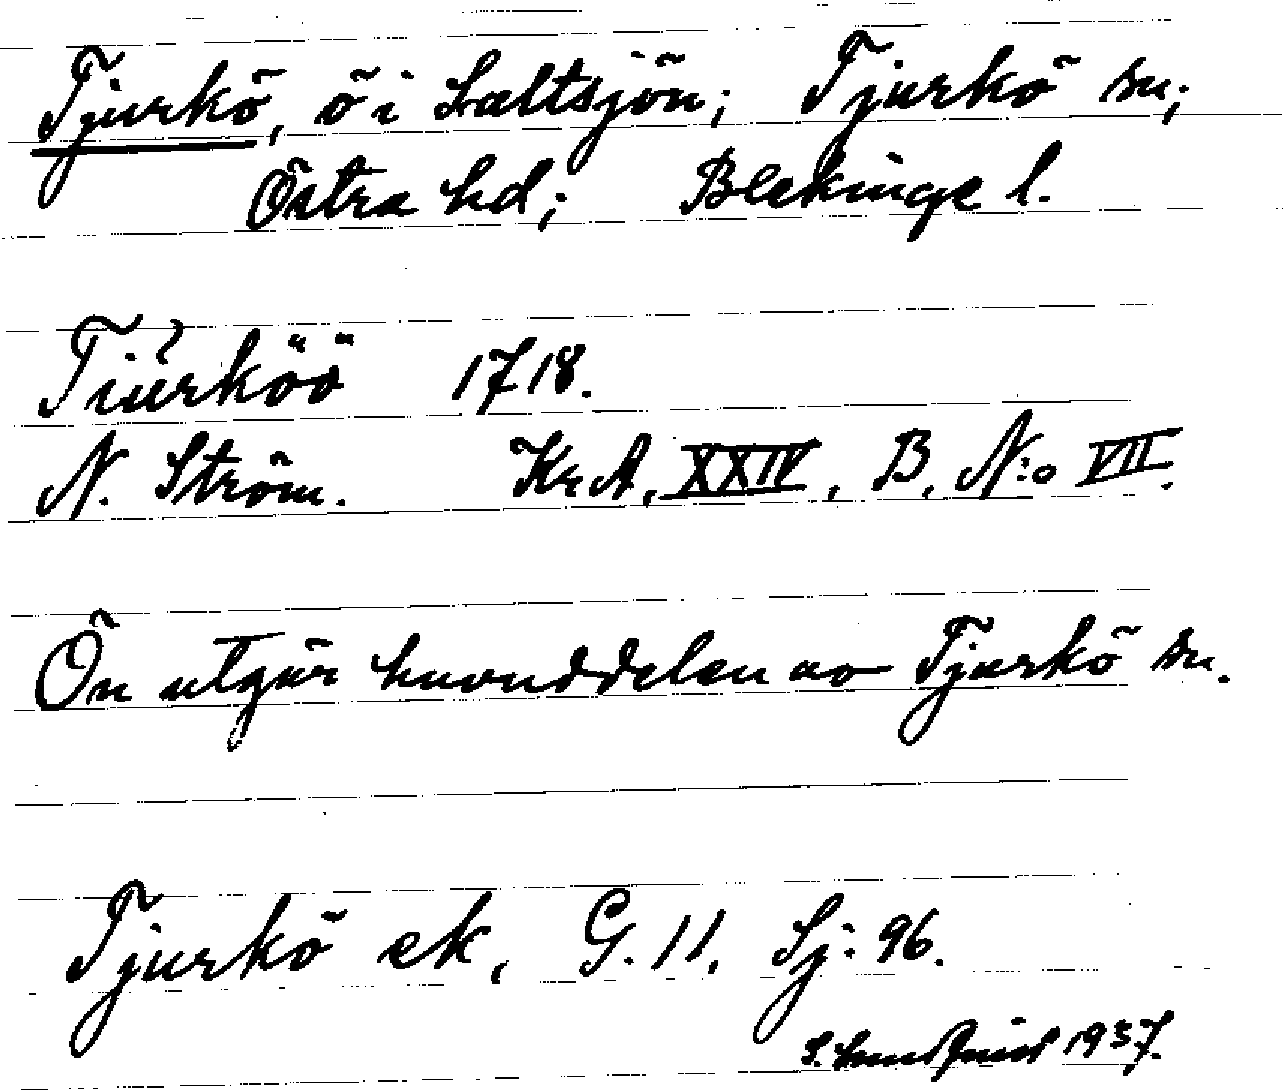 Tjurkö, ö i Saltsjön; Tjurkö sn;
Östra hd; Blekinge l.
Tiurköö 1718.
N. Ström. Kr.A, XXIV, B, N:o VII.
Ön utgör huvuddelen av Tjurkö sn.
Tjurkö ek, G. 11, Sj: 96.
1937.